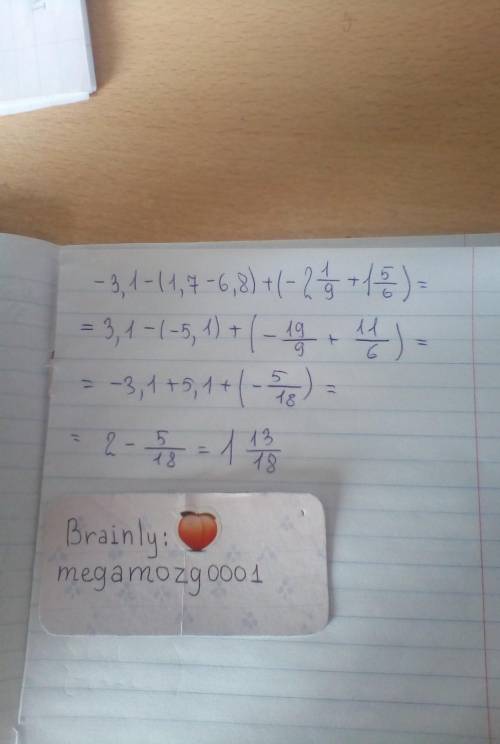 -3,1-(1,7-6,8)+(-2 1/9+1 5/6)=
=3,1-(-5,1)+(-19/9+11/6)=
=-3,1+5,1+(-5/18)=
=2-5/18=1 13/18
Brainly:
megamozg0001